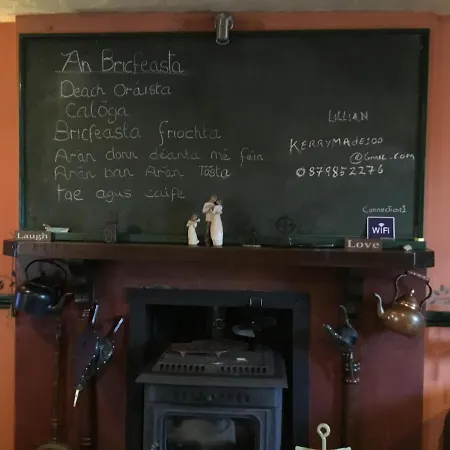 An Bricfeasta
Deach Oráista
Calóga
Bricfeasta friochta
Arán donn déanta mé féin
Arán ban Arán Tósta
Tae agus caife
LILLIAN
KERRYMADE100
@Gmail.com
0879852276
Connection1
WiFi
Laugh
Love